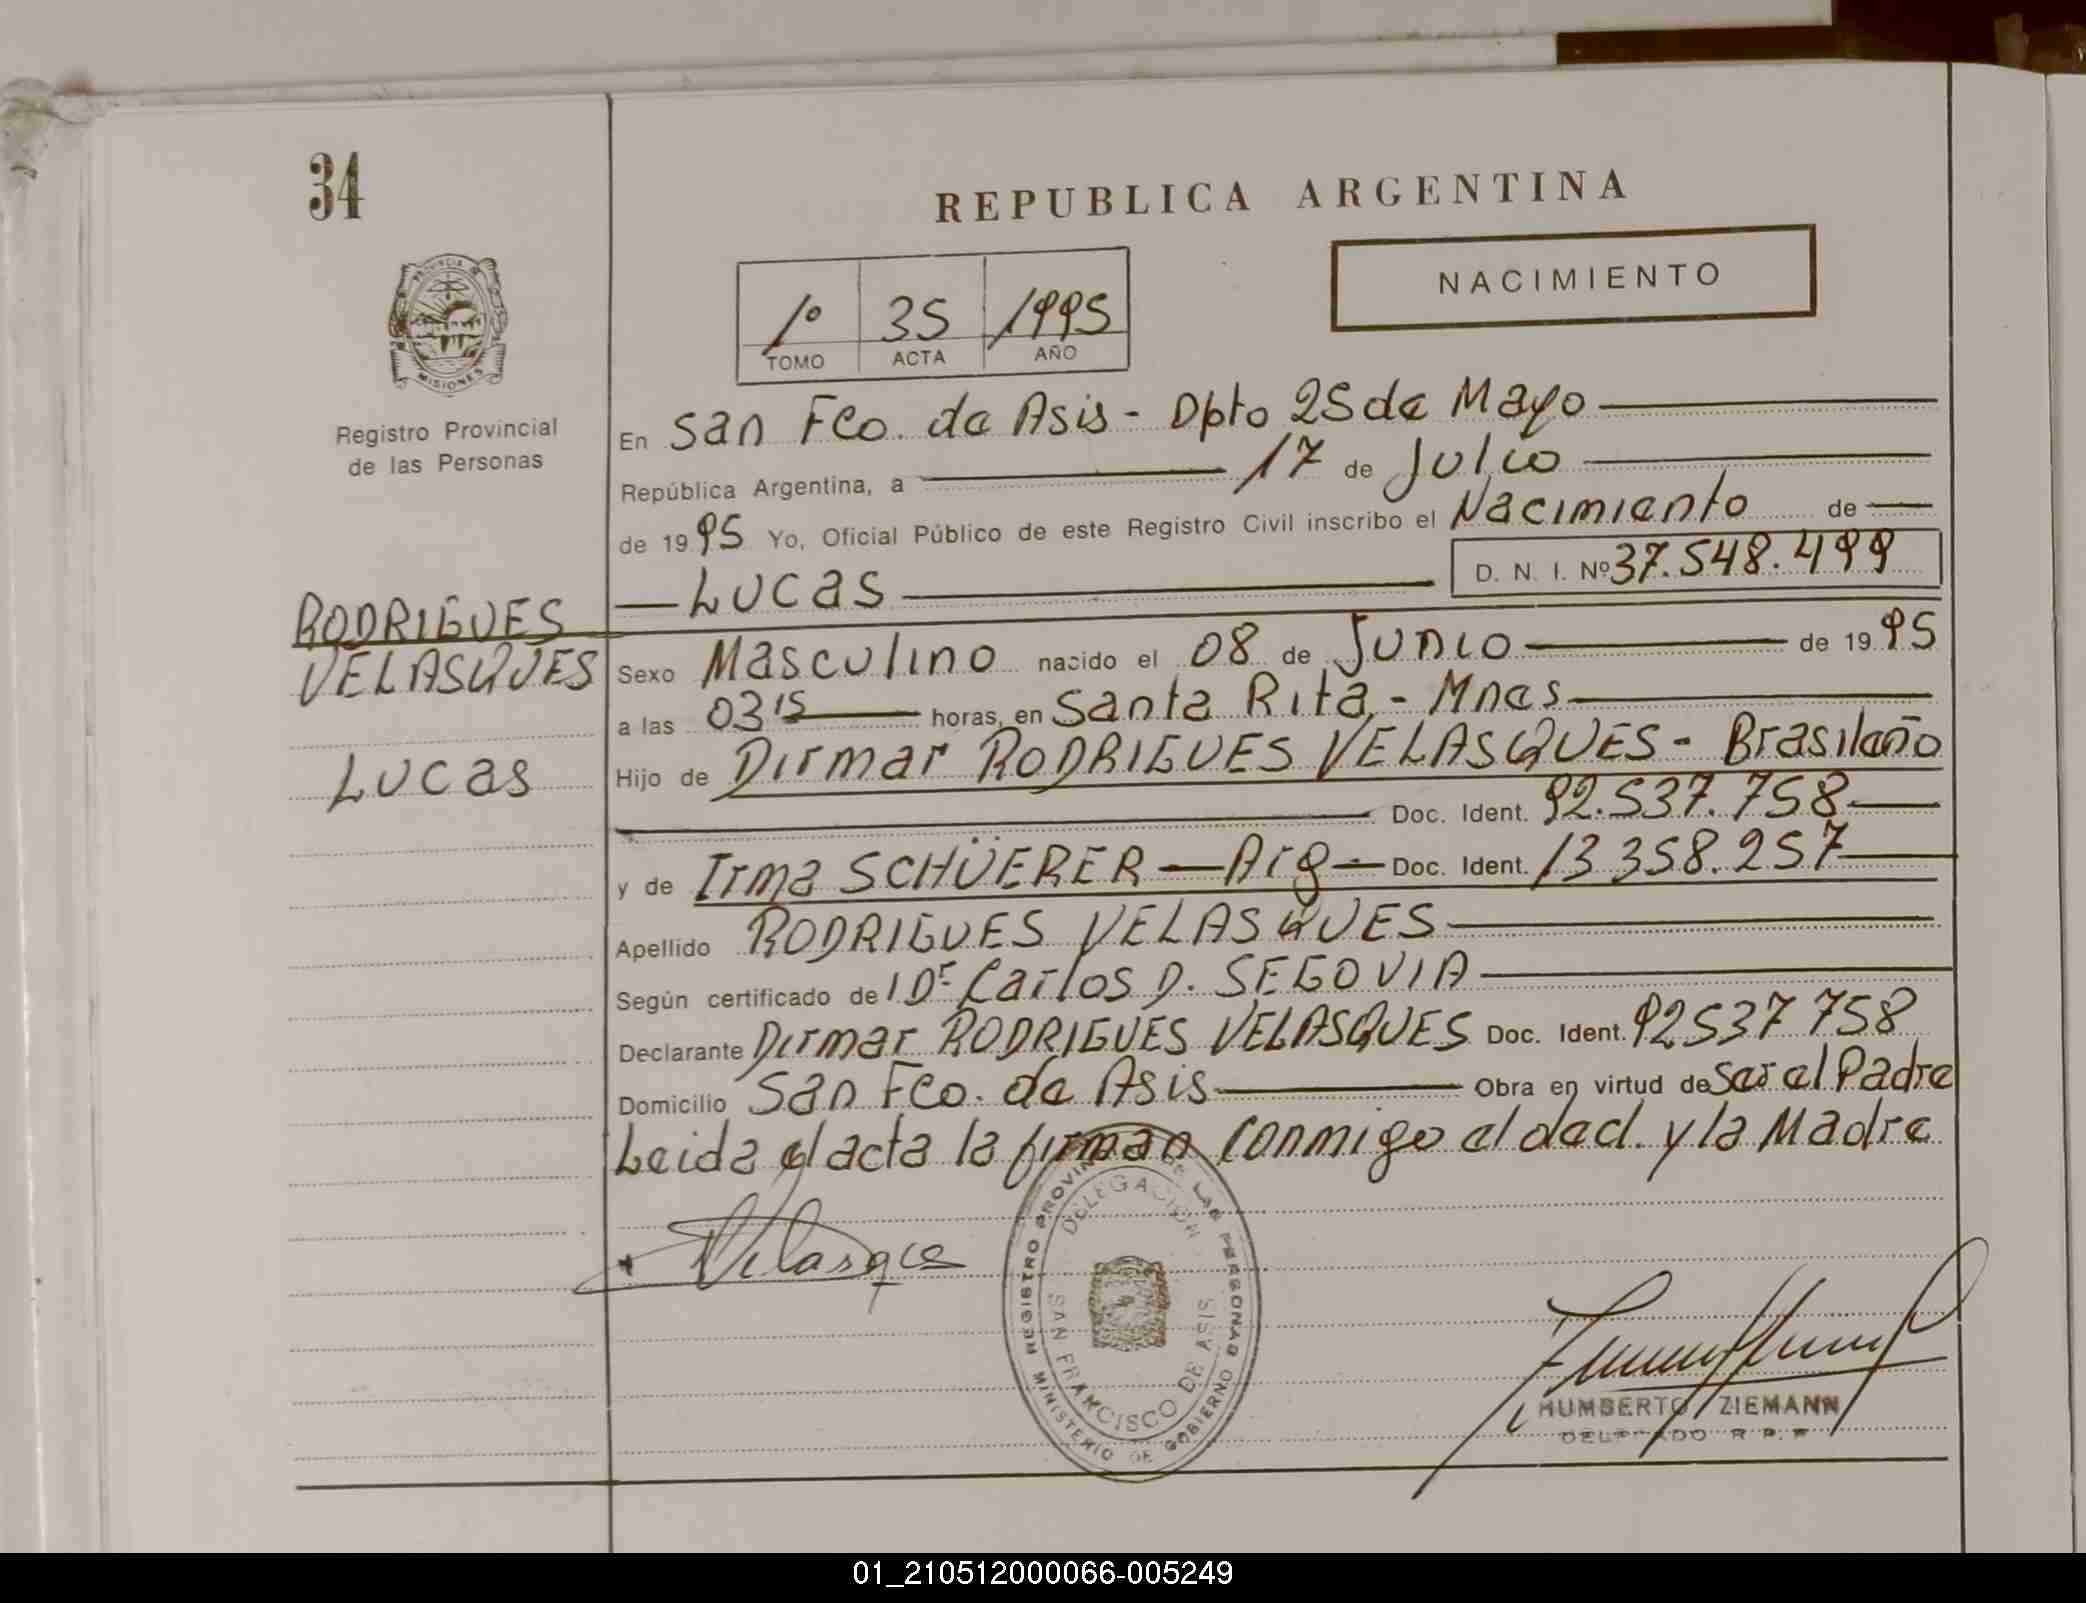 34
REPUBLICA ARGENTINA
NACIMIENTO
1º 35 1995
TOMO ACTA AÑO
PROVINCIA DE MISIONES
Registro Provincial
de las Personas
En San Fco. de Asis - Dpto 25 de Mayo
República Argentina, a 17 de Julio
de 1995 Yo, Oficial Público de este Registro Civil inscribo el Nacimiento de
D. N. I. Nº 37.548.499
Lucas
RODRIGUES
VELASQUES
Lucas
Sexo Masculino nacido el 08 de Junio de 1995
a las 03 15 horas, en Santa Rita - Mnes
Hijo de Dirmar RODRIGUES VELASQUES - Brasileño
Doc. Ident. 92.537.758
y de Irma SCHÜERER - Arg - Doc. Ident. 13 358.257
Apellido RODRIGUES VELASQUES
Según certificado de Dr Carlos D. SEGOVIA
Declarante Dirmar RODRIGUES VELASQUES Doc. Ident. 92537 758
Domicilio San Fco. de Asis Obra en virtud de Ser el Padre
Leida el acta la firman conmigo el decl. y la Madre
REGISTRO PROVINCIAL DE LAS PERSONAS
DELEGACION
SAN FRANCISCO DE ASIS
MINISTERIO DE GOBIERNO
HUMBERTO ZIEMANN
DELEGADO R. P. P.
01_210512000066-005249